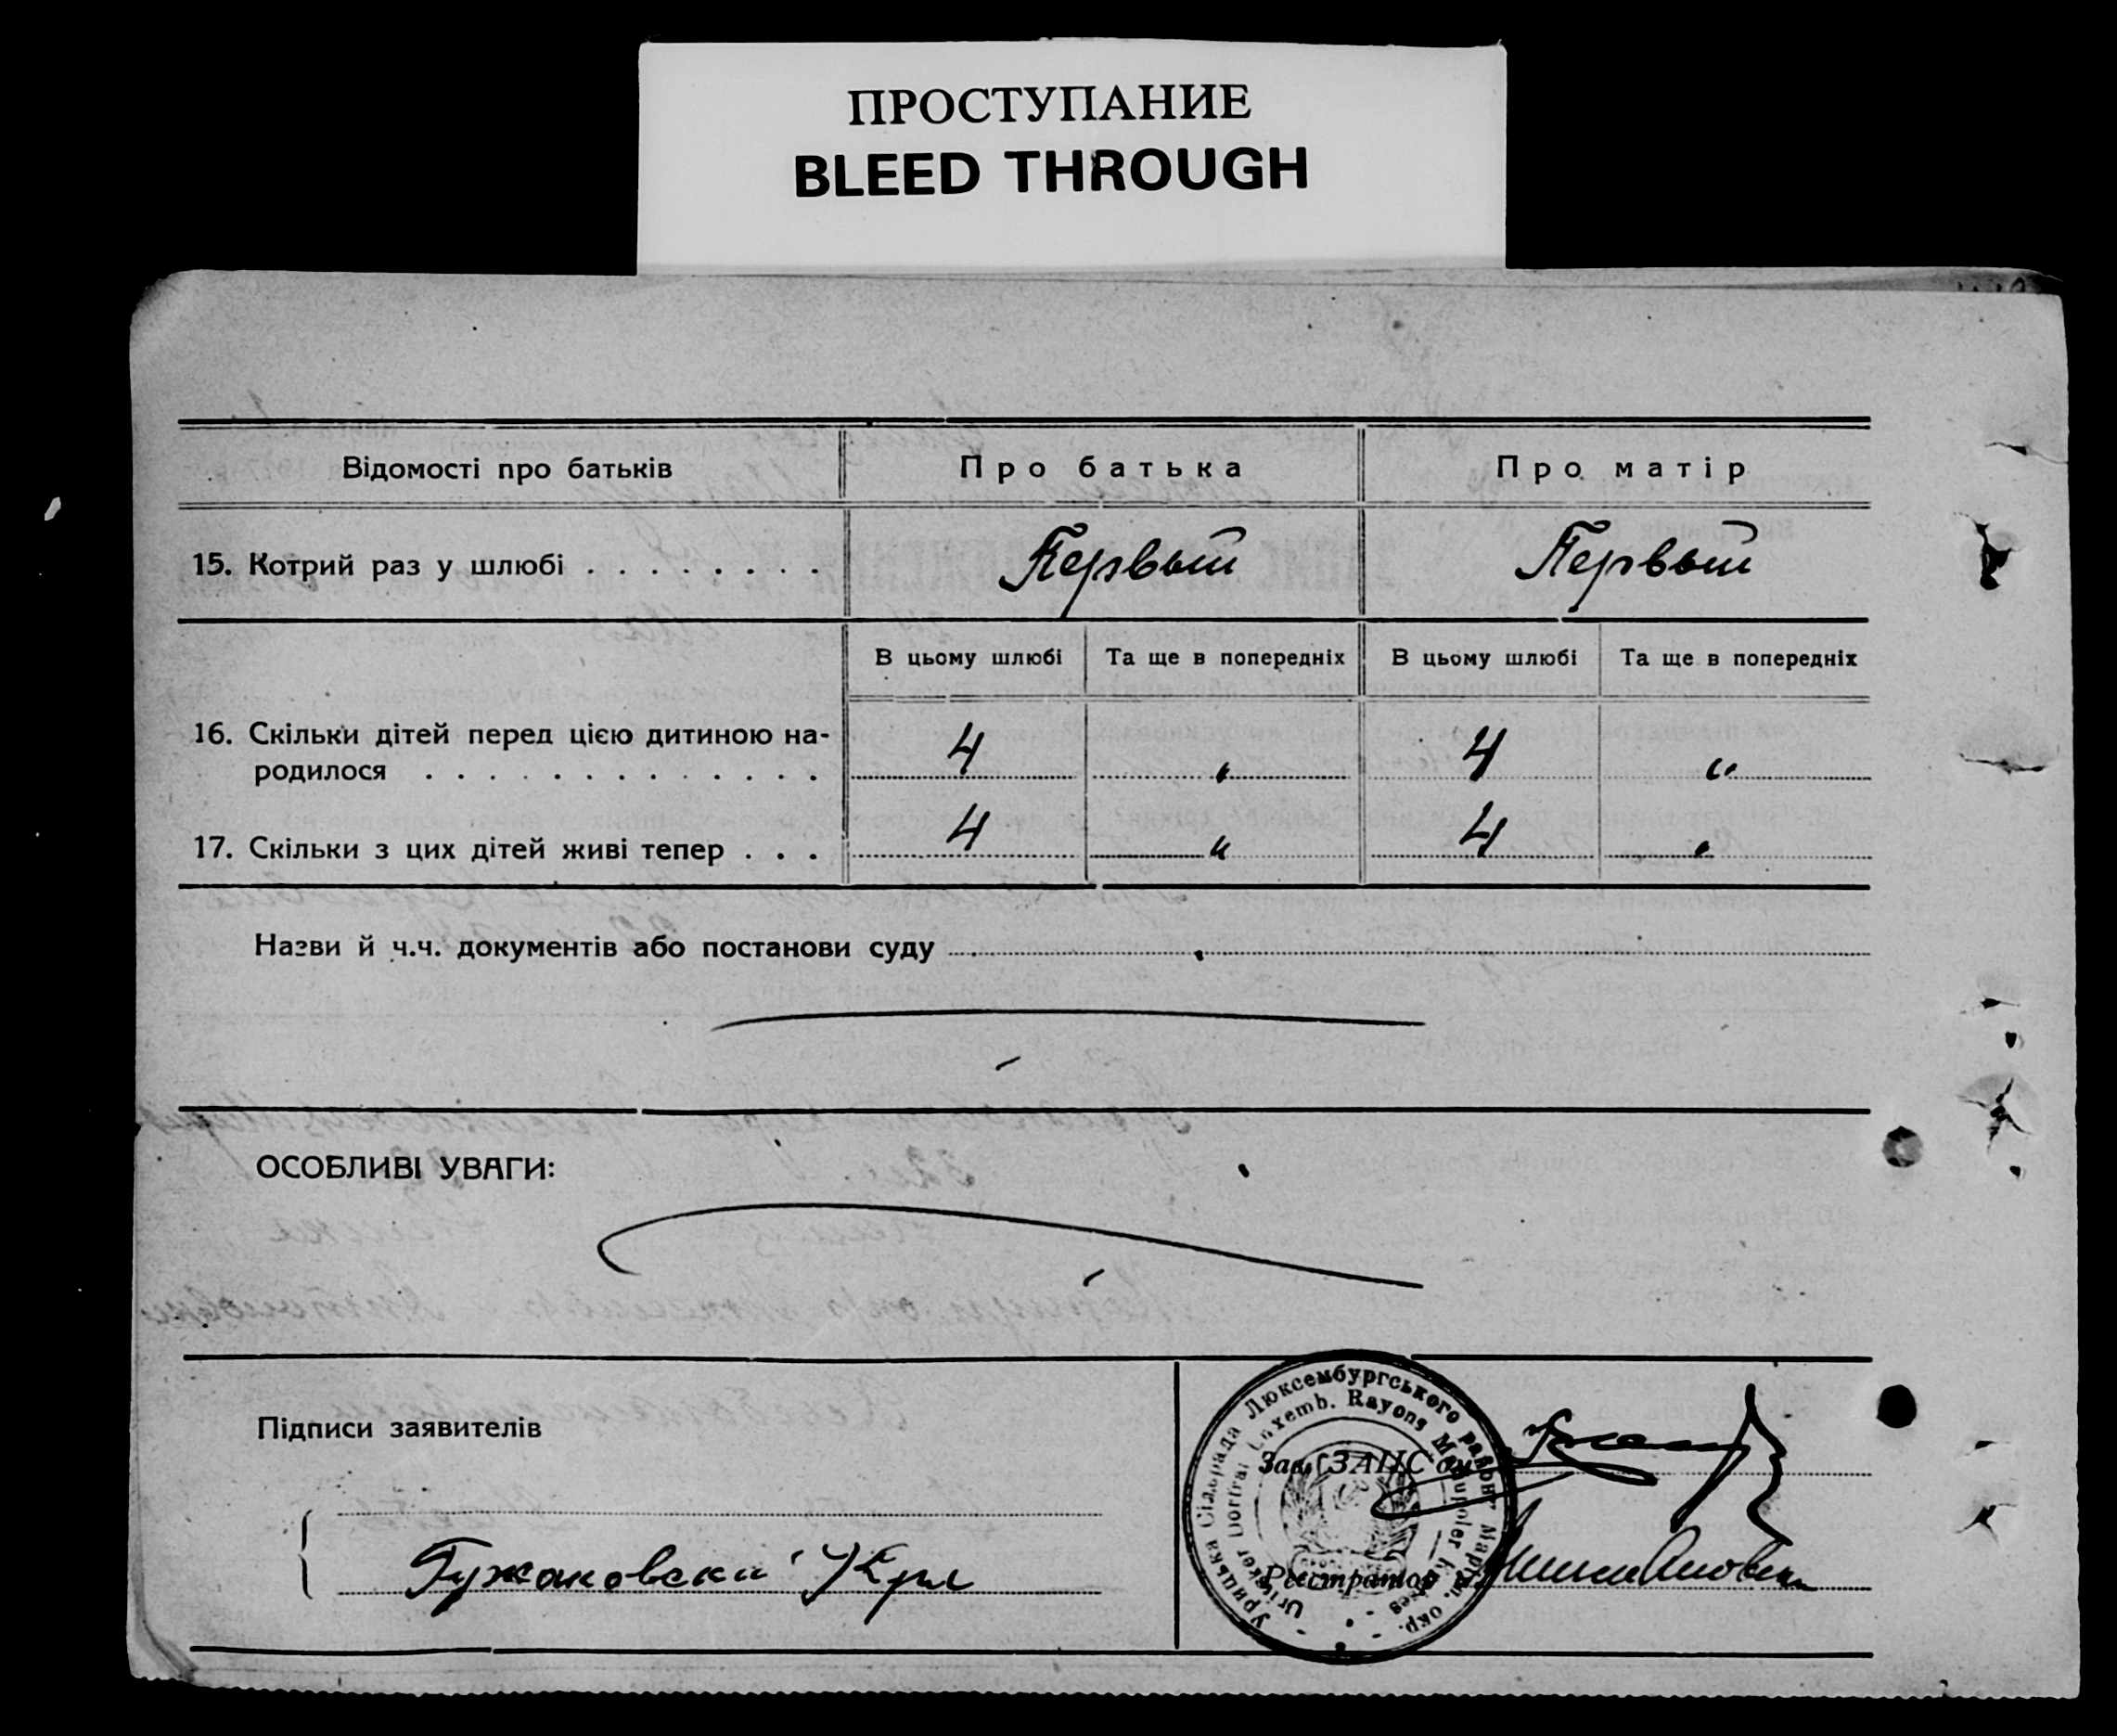 ПРОСТУПАНИЕ
BLEED THROUGH
Відомості про батьків
Про батька
Про матір
15. Котрий раз у шлюбі . . . . . . . .
Первый
Первый
В цьому шлюбі
Та ще в попередніх
В цьому шлюбі
Та ще в попередніх
16. Скільки дітей перед цією дитиною на-
родилося . . . . . . . . . . . . .
4
"
4
"
17. Скільки з цих дітей живі тепер . . .
4
"
4
"
Назви й ч.ч. документів або постанови суду
ОСОБЛИВІ УВАГИ:
Підписи заявителів
Урицька Сільрада Люксембургського району Маріюп. окр.
Luxemb. Rayons Mariupoler Kreises
Зав. ЗАЦС'ом
Реєстратор